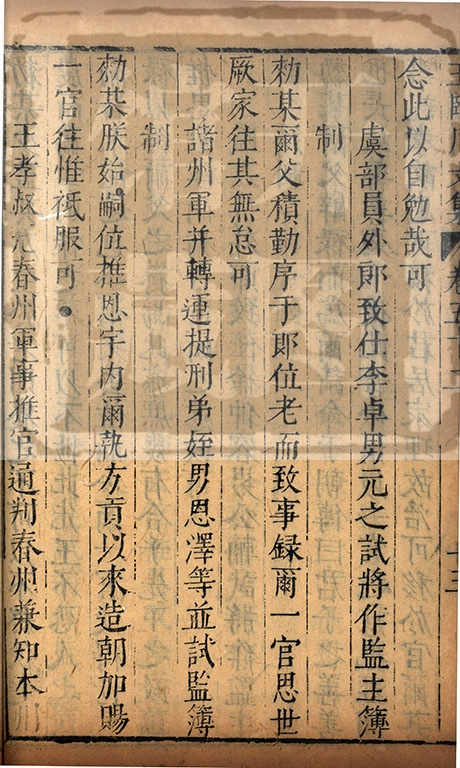 王臨川文集 卷五十二 十三
念此以自勉哉可
虞部員外郎致仕李卓男元之試將作監主簿
制
勑某爾父積勤序于郎位老而致事録爾一官恩世
厥家往其無怠可
諸州軍并轉運提刑弟姪男恩澤等並試監簿
制
勑某朕始嗣位推恩宇内爾執方貢以來造朝加賜
一官往惟祗服可
王孝叔充春州軍事推官通判春州兼知本州